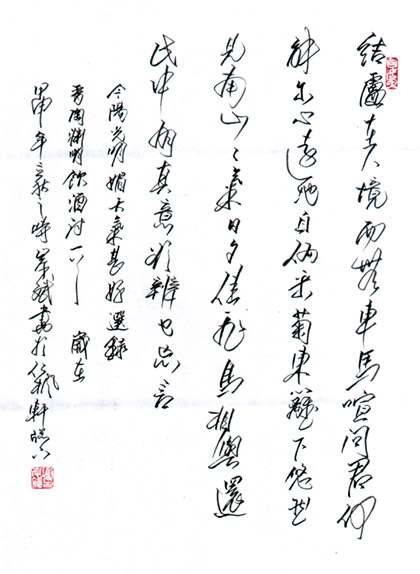 結廬在人境而無車馬喧問君何
能尔心遠地自偏采菊東籬下悠然
見南山〻氣日夕佳飛鳥相與還
此中有真意欲辨已忘言
今陽光明媚天氣甚好選録
晋陶淵明飲酒詩一首 歲在
甲申年 之時 書於 軒